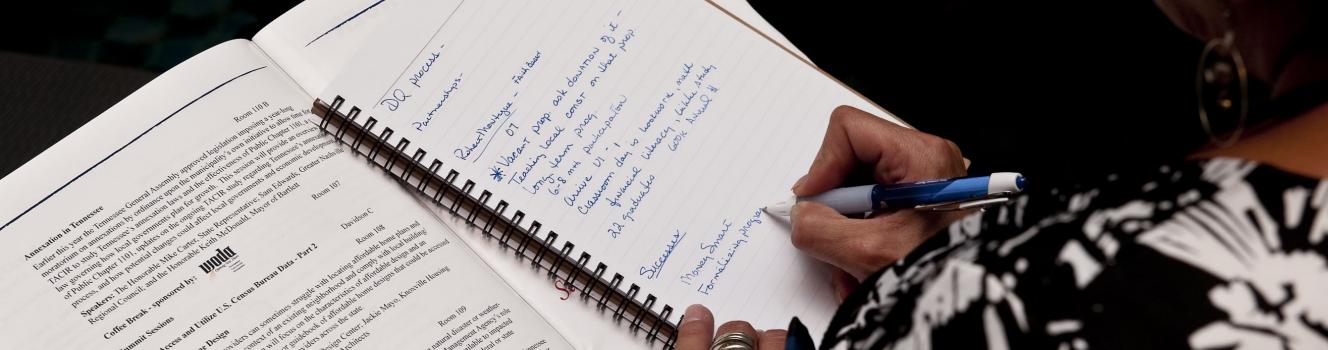 Room 110 B
Annexation in Tennessee
Earlier this year the Tennessee General Assembly approved legislation imposing a year-long
moratorium on annexations by ordinance upon the municipality's own initiative to allow time for
TACIR to study Tennessee's annexation laws and the effectiveness of Public Chapter 1101,
law governing how local governments plan for growth. This session will provide an overview
of Public Chapter 1101, updates on the ongoing TACIR study regarding Tennessee's annexation
process, and how potential changes could affect local governments and economic development
Speakers: The Honorable Mike Carter, State Representative; Sam Edwards, Greater Nashville
Regional Council; and the Honorable Keith McDonald, Mayor of Bartlett
Room 107
Coffee Break - sponsored by:
Davidson C
Summit Sessions
Room 108
Access and Utilize U.S. Census Bureau Data - Part 2
Design
can sometimes struggle with locating affordable home plans and
context of an existing neighborhood and comply with local building
will focus on the characteristics of affordable design and an
guidebook of affordable home designs that could be accessed
across the state
Design Center; Jackie Mayo, Knoxville Housing
Architects
Room 109
natural disaster or weather-
Management Agency's role
available to impacted
DQ process-
Partnerships-
07
* Vacant prop ask donation of it -
Teaching local const on that prop
Long term prog
6-8 mos participation
Classroom day is bookwork, math
financial literacy,
22 graduates
Successes
Money Smart
Formalizing program